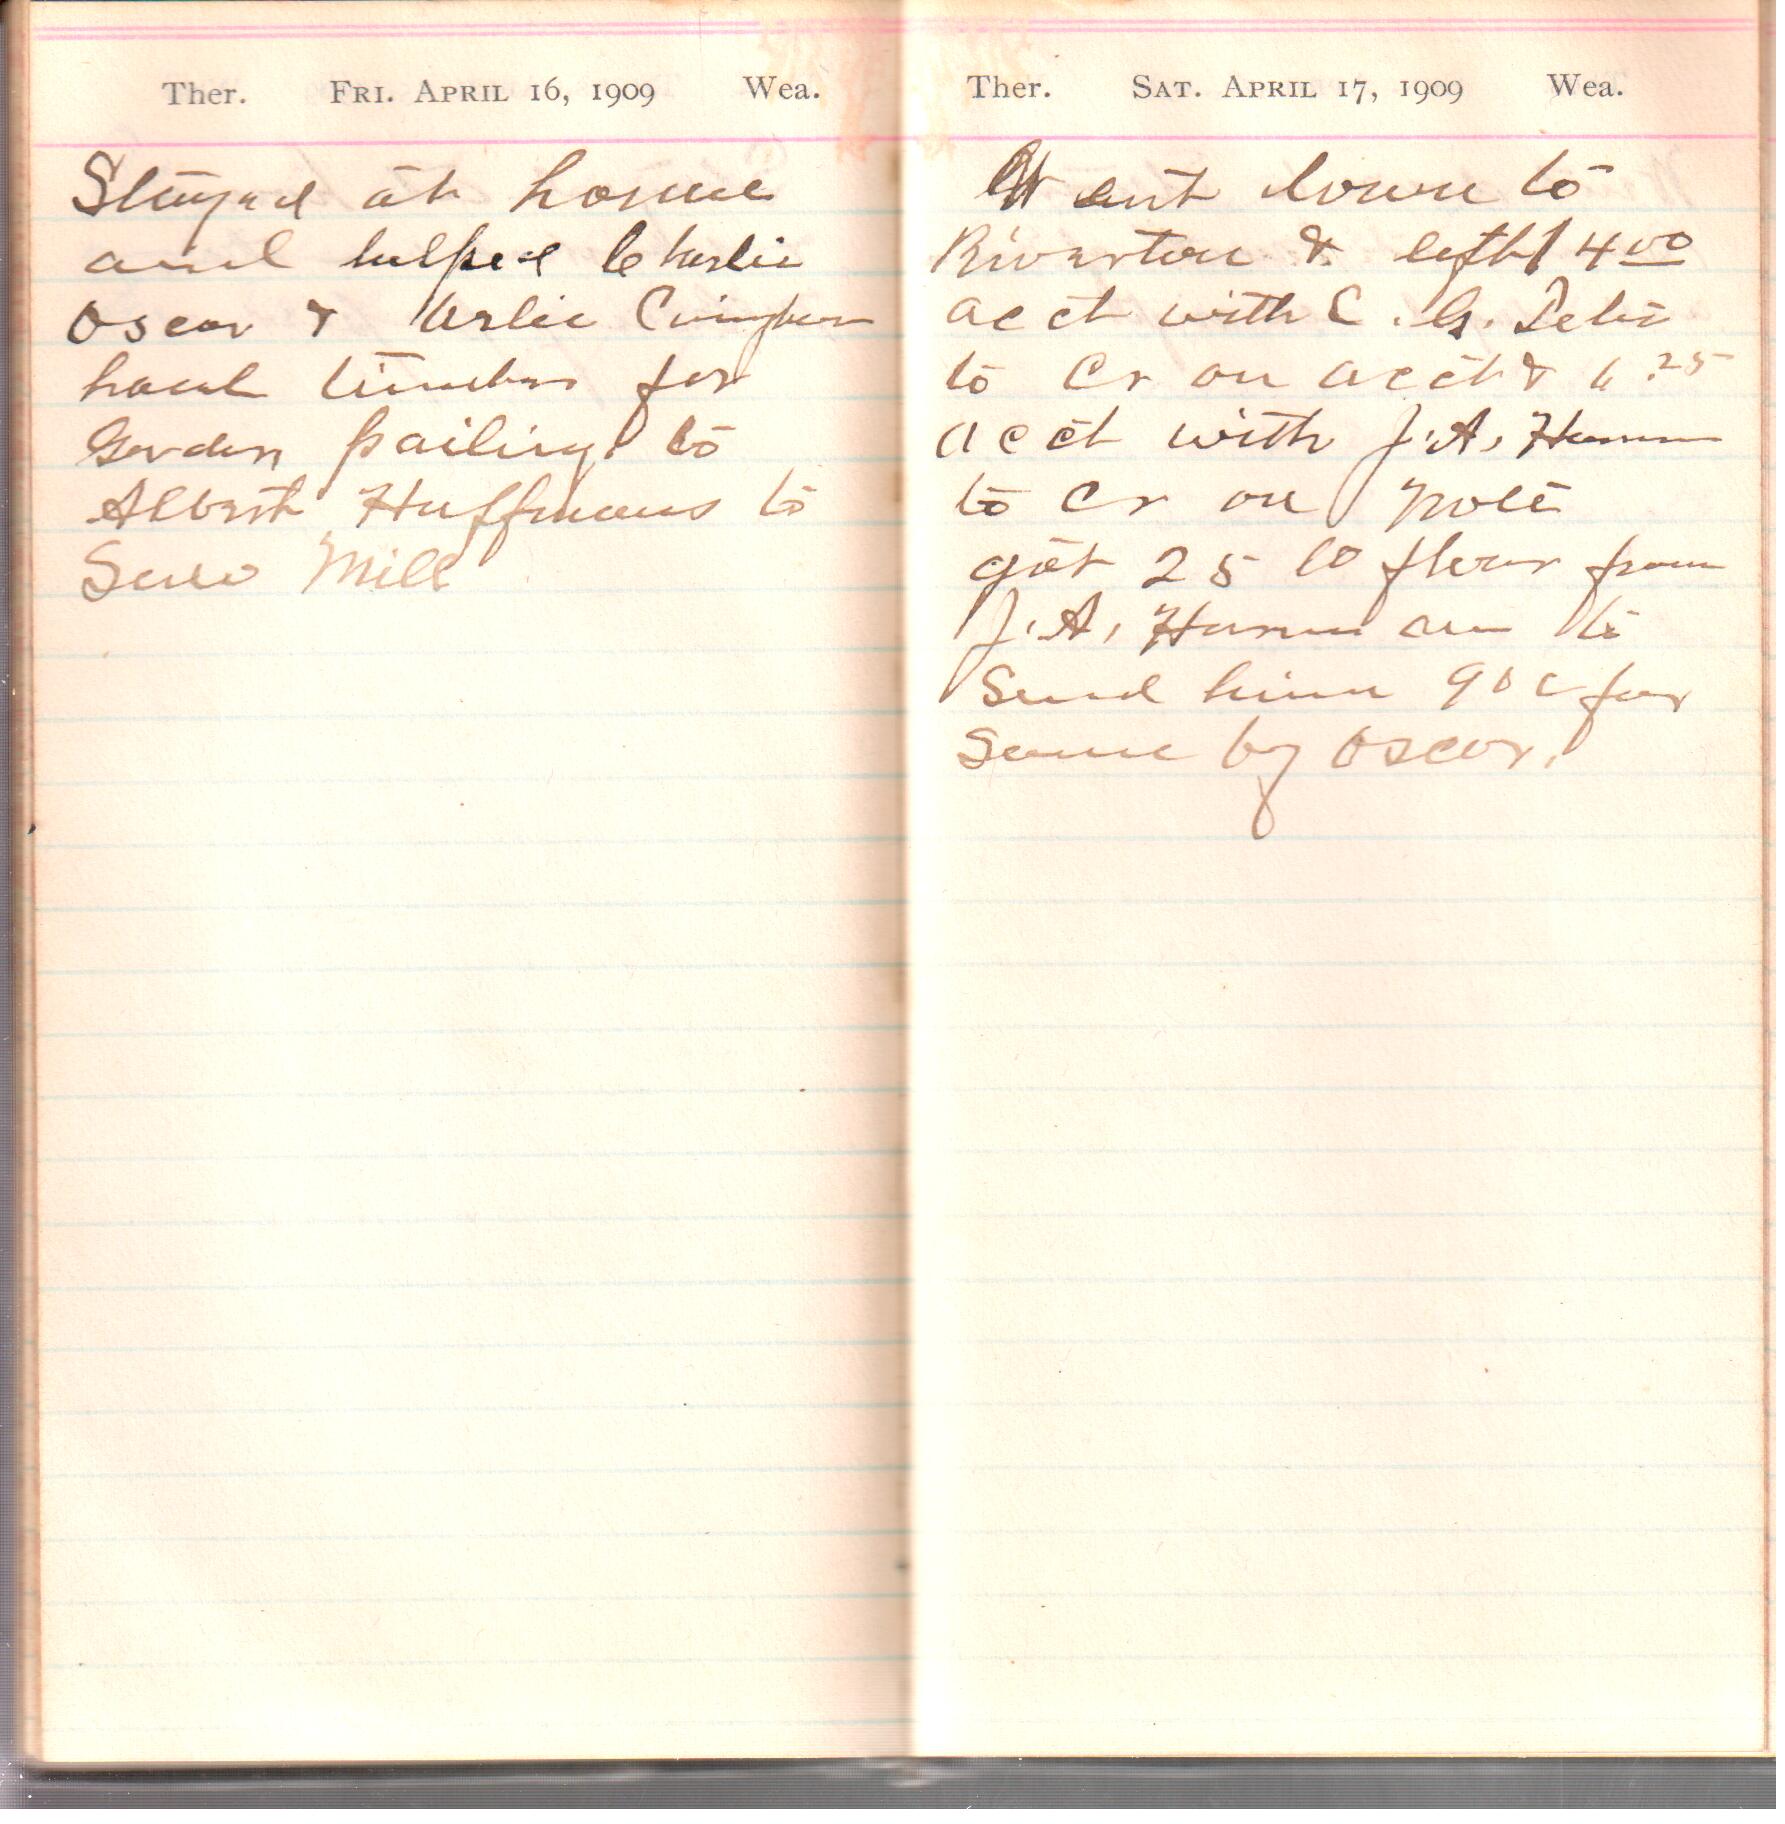 Ther. Fri. April 16, 1909 Wea.
Stayed at home
and helped Charlie
Oscar & Arlie
haul timber for
Garden pailing to
Albert Huffmans to
Saw Mill
Ther. Sat. April 17, 1909 Wea.
Went down to
Riverton & left 4 00
acct with
to Cr on acct & 6.25
acct with J. A. Hamm
to Cr on Note
got 25 lb flour from
J. A. Hamm am to
Send him 90c for
Same by Oscar.